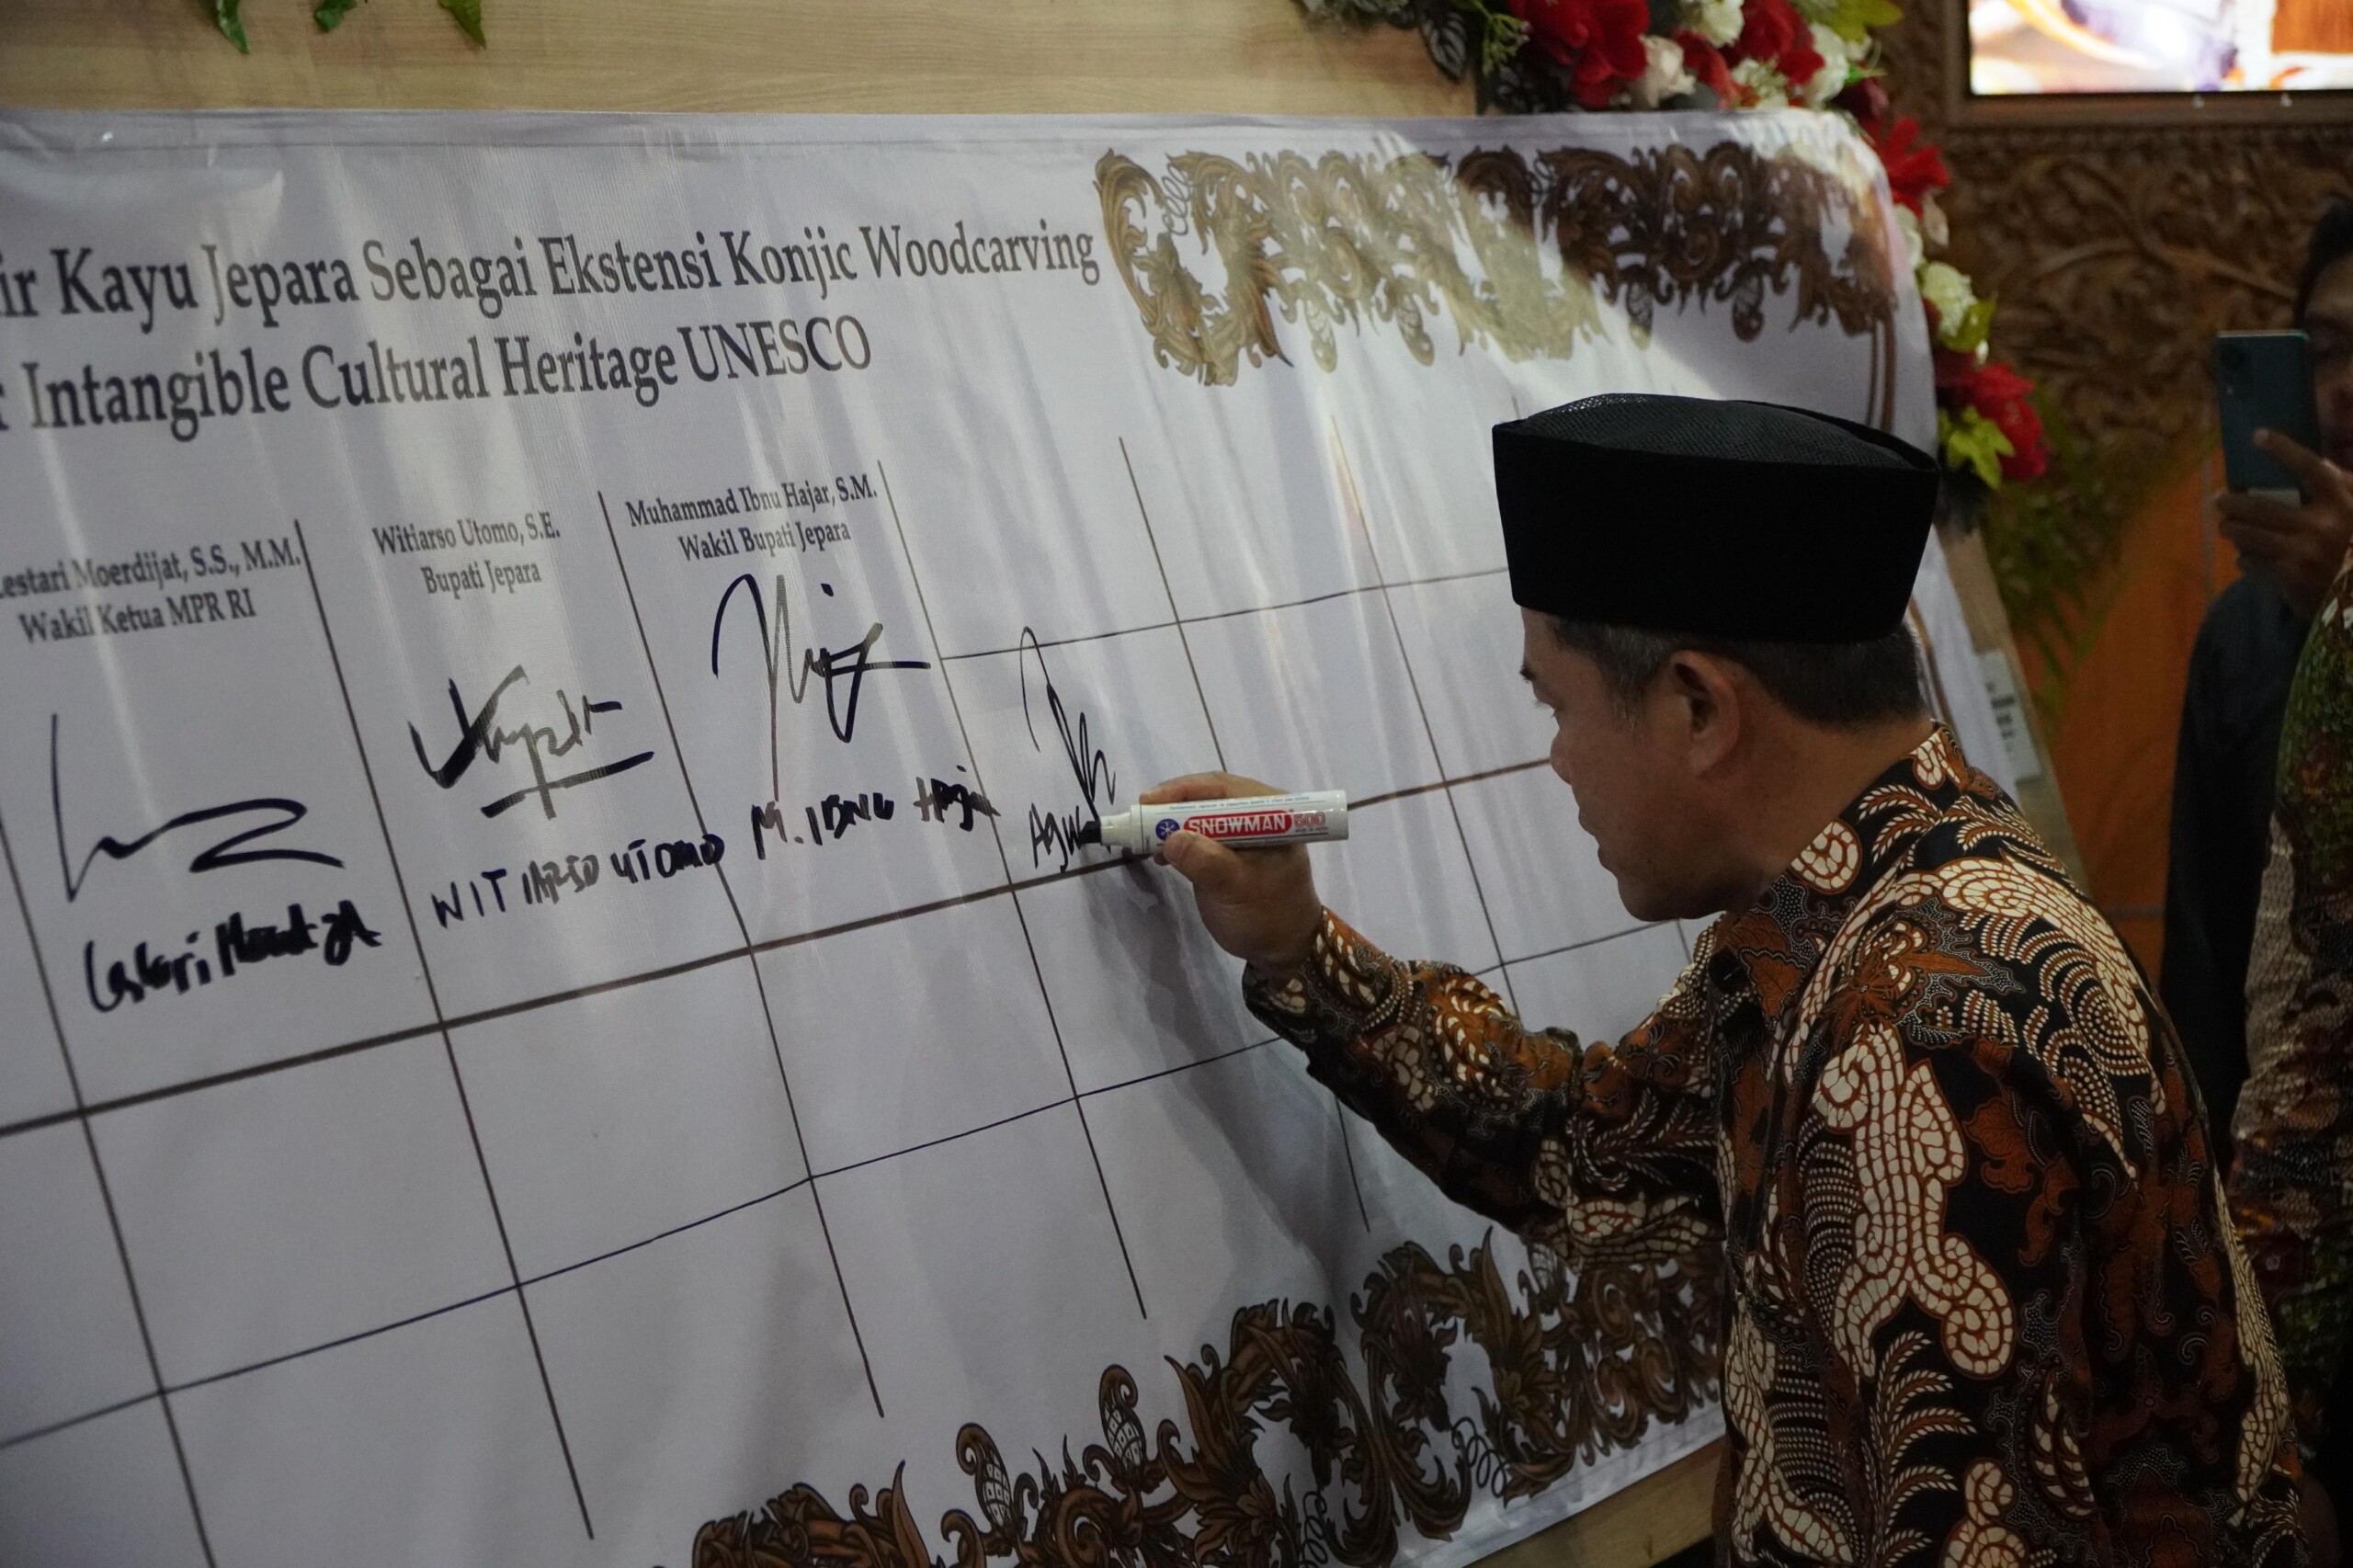 ir Kayu Jepara Sebagai Ekstensi Konjic Woodcarving
r Intangible Cultural Heritage UNESCO
Lestari Moerdijat, S.S., M.M.
Wakil Ketua MPR RI
Witiarso Utomo, S.E.
Bupati Jepara
Muhammad Ibnu Hajar, S.M.
Wakil Bupati Jepara
Lestari Moerdijat
WITIARSO UTOMO
M. IBNU Hajar
Agus
SNOWMAN 500